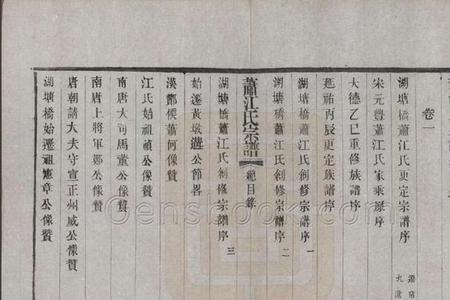 卷一
湖塘橋蕭江氏更定宗譜序
宋元豐蕭江氏家乘原序
大德乙巳重修族譜序
延祐丙辰更定族譜序
湖塘橋蕭江氏創修宗譜序 一
湖塘橋蕭江氏創修宗譜序 二
蕭江氏宗譜 總目錄
湖塘橋蕭江氏創修宗譜序 三
始遷黃墩公節畧
漢酇侯蕭何像贊
江氏始祖禎公像贊
南唐大司馬董公像贊
南唐上將軍鄭公像贊
唐朝請大夫守宣正州威公像贊
湖塘橋始遷祖憲章公像贊